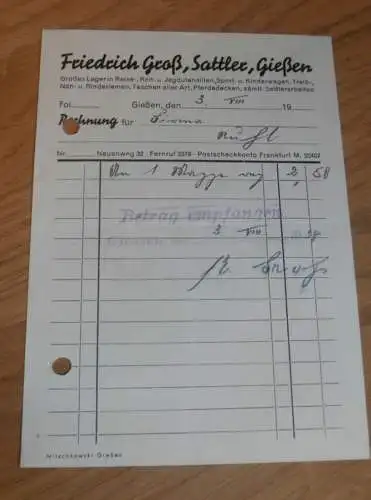 Friedrich Groß, Sattler, Gießen
Großes Lager in Reise-, Reit- u. Jagdutensilien, Sport- u. Kinderwagen, Treib-,
Näh- u. Binderiemen, Taschen aller Art, Pferdedecken, sämtl. Sattlerarbeiten
Fol. Gießen, den 3. VIII 19
Rechnung für Firma
Nr. Neuenweg 32 - Fernruf 3378 - Postscheckkonto Frankfurt M.
1 2 50
Betrag empfangen
3 VIII
Mitschkowski Gießen